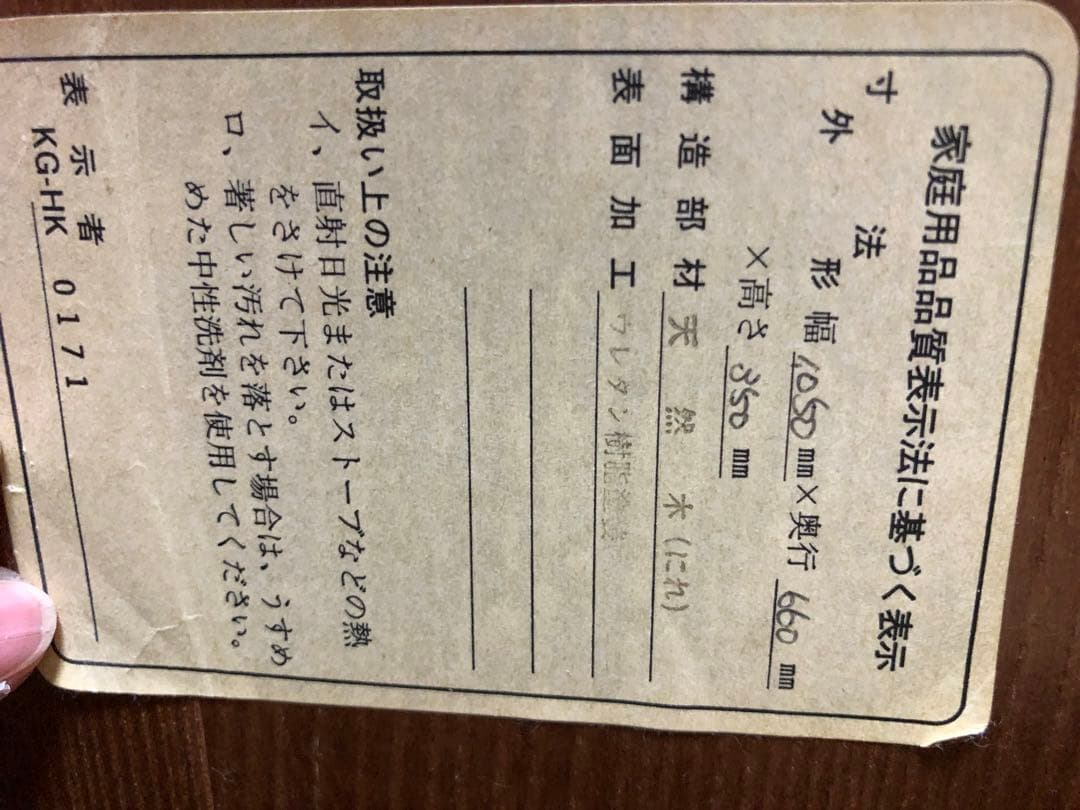 家庭用品品質表示法に基づく表示
寸法
外形幅1,050mm×奥行660mm
×高さ350mm
構造部材天然木(にれ)
表面加工ウレタン樹脂塗装
取扱い上の注意
イ、直射日光またはストーブなどの熱
をさけて下さい。
ロ、著しい汚れを落とす場合は、うすめ
めた中性洗剤を使用してください。
表示者
KG-HK 0171